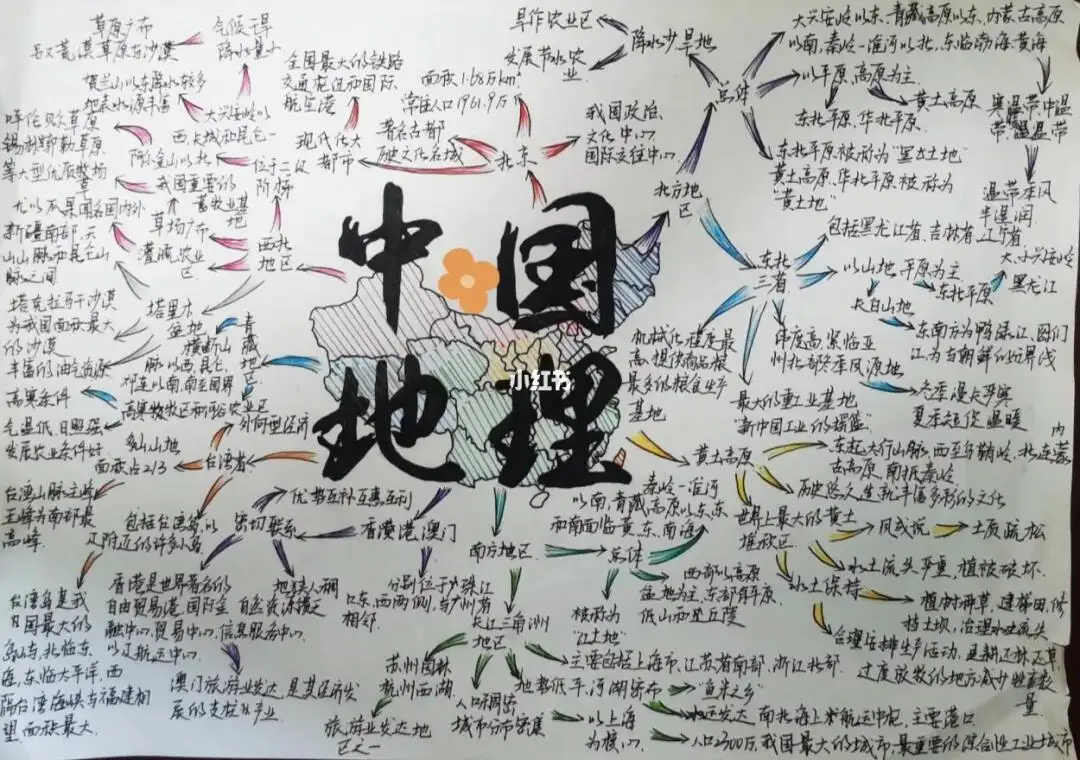 中国
地理
小红书
草原广布
气候干旱
降水量小
贺兰山以东降水较多
地表水源丰富
呼伦贝尔草原
锡林郭勒草原
等大型优质牧场
大兴安岭以
西、长城和昆仑—
阿尔金山以北
位于二级
阶梯
我国重要的
畜牧业基
地
草场广布
灌溉农业
区
西北
地区
尤以瓜果闻名国内外
新疆南部,天
山山脉和昆仑山
脉之间
塔里木
盆地
塔克拉玛干沙漠
为我国面积最大
的沙漠
丰富的油气资源
全国最大的铁路
交通枢纽和国际
航空港
现代化大
都市
面积1.68万km²
常住人口1961.9万
著名古都
历史文化名城
北京
我国政治、
文化中心
国际交往中心
旱作农业区
发展节水农
业
降水少旱地
总体
大兴安岭以东、青藏高原以东,内蒙古高原
以南,秦岭—淮河以北,东临渤海、黄海
以平原、高原为主.
黄土高原
东北平原、华北平原.
寒温带、中温
带、暖温带
温带季风
半湿润
东北平原被称为“黑土地”
黄土高原、华北平原被称为
“黄土地”
北方地
区
东北
三省
包括黑龙江省、吉林省、辽宁省
以山地、平原为主
大、小兴安岭
东北平原
黑龙江
长白山地
东南方为鸭绿江、图们
江,为与朝鲜的边界线
纬度高,紧临亚
洲北部冬季风源地
冬季漫长严寒
夏季短促温暖
最大的重工业基地
“新中国工业的摇篮”
机械化程度最
高、提供商品粮
最多的粮食生产
基地
青
藏
地
区
横断山
脉以西,昆仑、
祁连以南,南至国界
高寒牧区和河谷农业区
高寒条件
气温低、日照强
发展农业条件好
外向型经济
台湾省
多山山地
面积占2/3
台湾山脉主峰
玉峰为南部最
高峰.
包括台湾岛以
及附近的许多小岛
台湾岛是我
国最大的
岛屿,北临东
海,东临太平洋,西
隔台湾海峡与福建相
望,面积最大.
优势互补互惠互利
密切联系
香港、澳门
香港是世界著名的
自由贸易港,国际金
融中心,贸易中心,信息服务中心,
以及航运中心.
地狭人稠
自然资源匮乏
分别位于珠江
口东、西两侧,与广州省
相邻.
澳门旅游业发达,是其经济发
展的支柱产业
南方地区
总体
秦岭—淮河
以南,青藏高原以东,东、
西南面临黄、东、南海
被称为
“红土地”
西部以高原
盆地为主,东部有平原
低山,西丘丘陵
长江三角洲
地区
苏州园林
杭州西湖
旅游业发达地
区之一
人口稠密
城市分布密集
主要包括上海市、江苏省南部、浙江北部
地势低平,河湖密布
“鱼米之乡”
以上海
为核心
水运发达,南北海上航运中枢,主要港口
人口2300万,我国最大的城市,最重要的综合性工业城市
黄土高原
东起太行山脉,西至乌鞘岭,北连内蒙
古高原,南抵秦岭
历史悠久,造就丰富多彩的文化
世界上最大的黄土
堆积区
风成说
土质疏松
水土流失严重,植被破坏.
水土保持
植树种草,建梯田,修
挡土坝,治理水土流失
合理安排生产活动,退耕还林还草
过度放牧的地方减少牲畜数
量